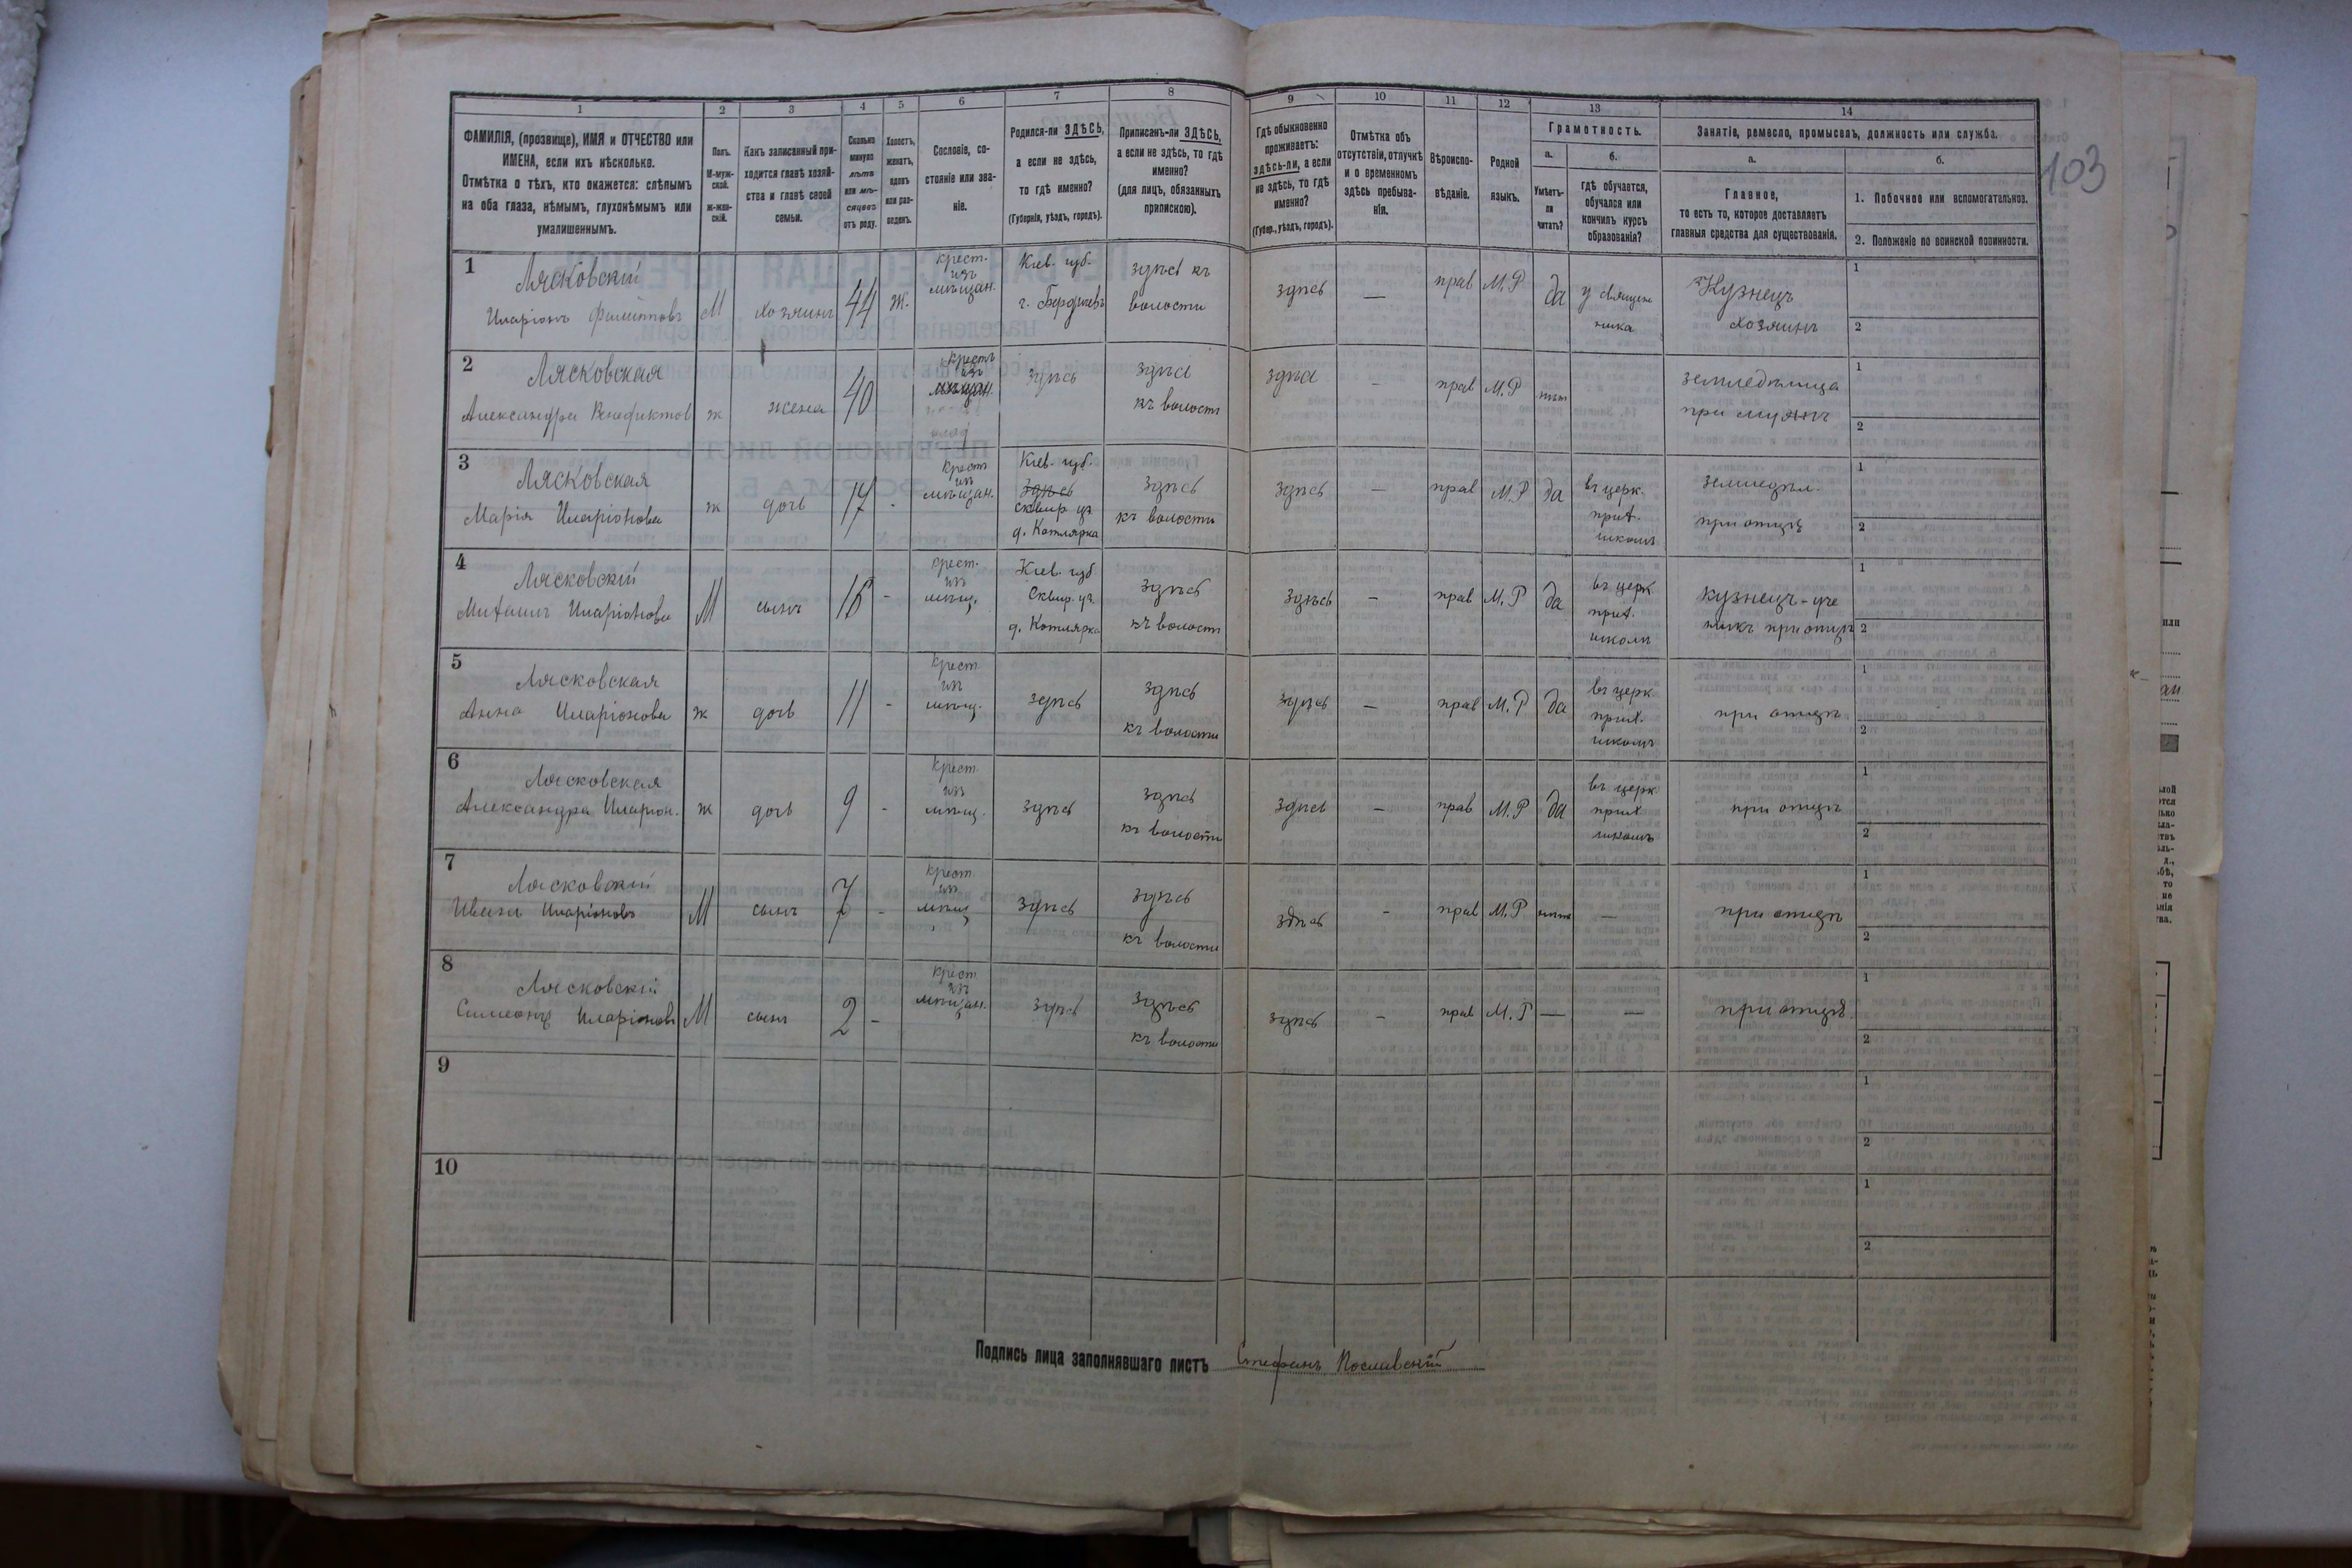 103
1 2 3 4 5 6 7 8 9 10 11 12 13 14
ФАМИЛІЯ, (прозвище), ИМЯ и ОТЧЕСТВО или ИМЕНА, если ихъ нѣсколько.
Отмѣтка о тѣхъ, кто окажется: слѣпымъ на оба глаза, нѣмымъ, глухонѣмымъ или умалишеннымъ.
Полъ.
М-муж-
ской.
Ж-жен-
скій.
Какъ записанный при-
ходится главѣ хозяй-
ства и главѣ своей
семьи.
Сколько
минуло
лѣтъ
или мѣ-
сяцевъ
отъ роду.
Холостъ,
женатъ,
вдовъ
или раз-
веденъ.
Сословіе, со-
стояніе или зва-
ніе.
Родился-ли ЗДѢСЬ,
а если не здѣсь,
то гдѣ именно?
(Губернія, уѣздъ, городъ).
Приписанъ-ли ЗДѢСЬ,
а если не здѣсь, то гдѣ
именно?
(для лицъ, обязанныхъ
припискою).
Гдѣ обыкновенно
проживаетъ:
здѣсь-ли, а если
не здѣсь, то гдѣ
именно?
(Губер., уѣздъ, городъ).
Отмѣтка объ
отсутствіи, отлучкѣ
и о временномъ
здѣсь пребыва-
ніи.
Вѣроиспо-
вѣданіе.
Родной
языкъ.
Грамотность.
а.
Умѣетъ-
ли
читать?
б.
гдѣ обучается,
обучался или
кончилъ курсъ
образованія?
Занятіе, ремесло, промыселъ, должность или служба.
а.
Главное,
то есть то, которое доставляетъ
главныя средства для существованія.
б.
1. Побочное или вспомогательное.
2. Положеніе по воинской повинности.
1
Лясковскій
Иларіонъ Филипповъ
М
хозяинъ
44
Ж.
крест.
изъ
мѣщан.
Кіев. губ.
г. Бердичевъ
здѣсь къ
волости
здѣсь
—
прав
М.Р
да
у священ
ника
Кузнецъ
хозяинъ
1
2
2
Лясковская
Александра Венедиктов
ж
жена
40
крестъ
изъ
мѣщан.
здѣсь
здѣсь
къ волост
здѣсь
—
прав
М.Р
нѣт
земледѣлица
при мужѣ
1
2
3
Лясковская
Марія Иларіонова
ж
дочь
17
-
крест
из
мѣщан.
Кіев. губ.
здѣсь
Сквир уз
д. Котлярка
здѣсь
къ волости
здѣсь
—
прав
М.Р
да
въ церк.
прих.
школѣ
земледѣл.
при отцѣ
1
2
4
Лясковскій
Михаилъ Иларіонови
М
сынъ
16
-
крест.
из
мѣщ.
Кіев. губ
Сквир. уз.
д. Котлярка
здѣсь
къ волост
здѣсь
—
прав
М.Р
да
въ церк
прих.
школѣ
кузнецъ-уче
никъ при отцѣ
1
2
5
Лясковская
Анна Иларіонова
ж
дочь
11
-
крест.
из
мѣщ.
здѣсь
здѣсь
къ волости
здѣсь
—
прав
М.Р
да
въ церк.
прих.
школѣ
при отцѣ
1
2
6
Лясковская
Александра Иларіон.
ж
дочь
9
-
крест.
из
мѣщ.
здѣсь
здѣсь
къ волости
здѣсь
—
прав
М.Р
да
въ церк
прих
школѣ
при отцѣ
1
2
7
Лясковскій
Иванъ Иларіоновъ
М
сынъ
7
-
крест
из
мѣщ
здѣсь
здѣсь
къ волости
здѣсь
-
прав
М.Р
—
при отцѣ
1
2
8
Лясковскій
Симеонъ Иларіоновъ
М
сынъ
2
-
крест
из
мѣщан.
здѣсь
здѣсь
къ волости
здѣсь
—
прав
М.Р
—
—
при отцѣ
1
2
9
1
2
10
1
2
Подпись лица заполнявшаго листъ Стефанъ Пославскій